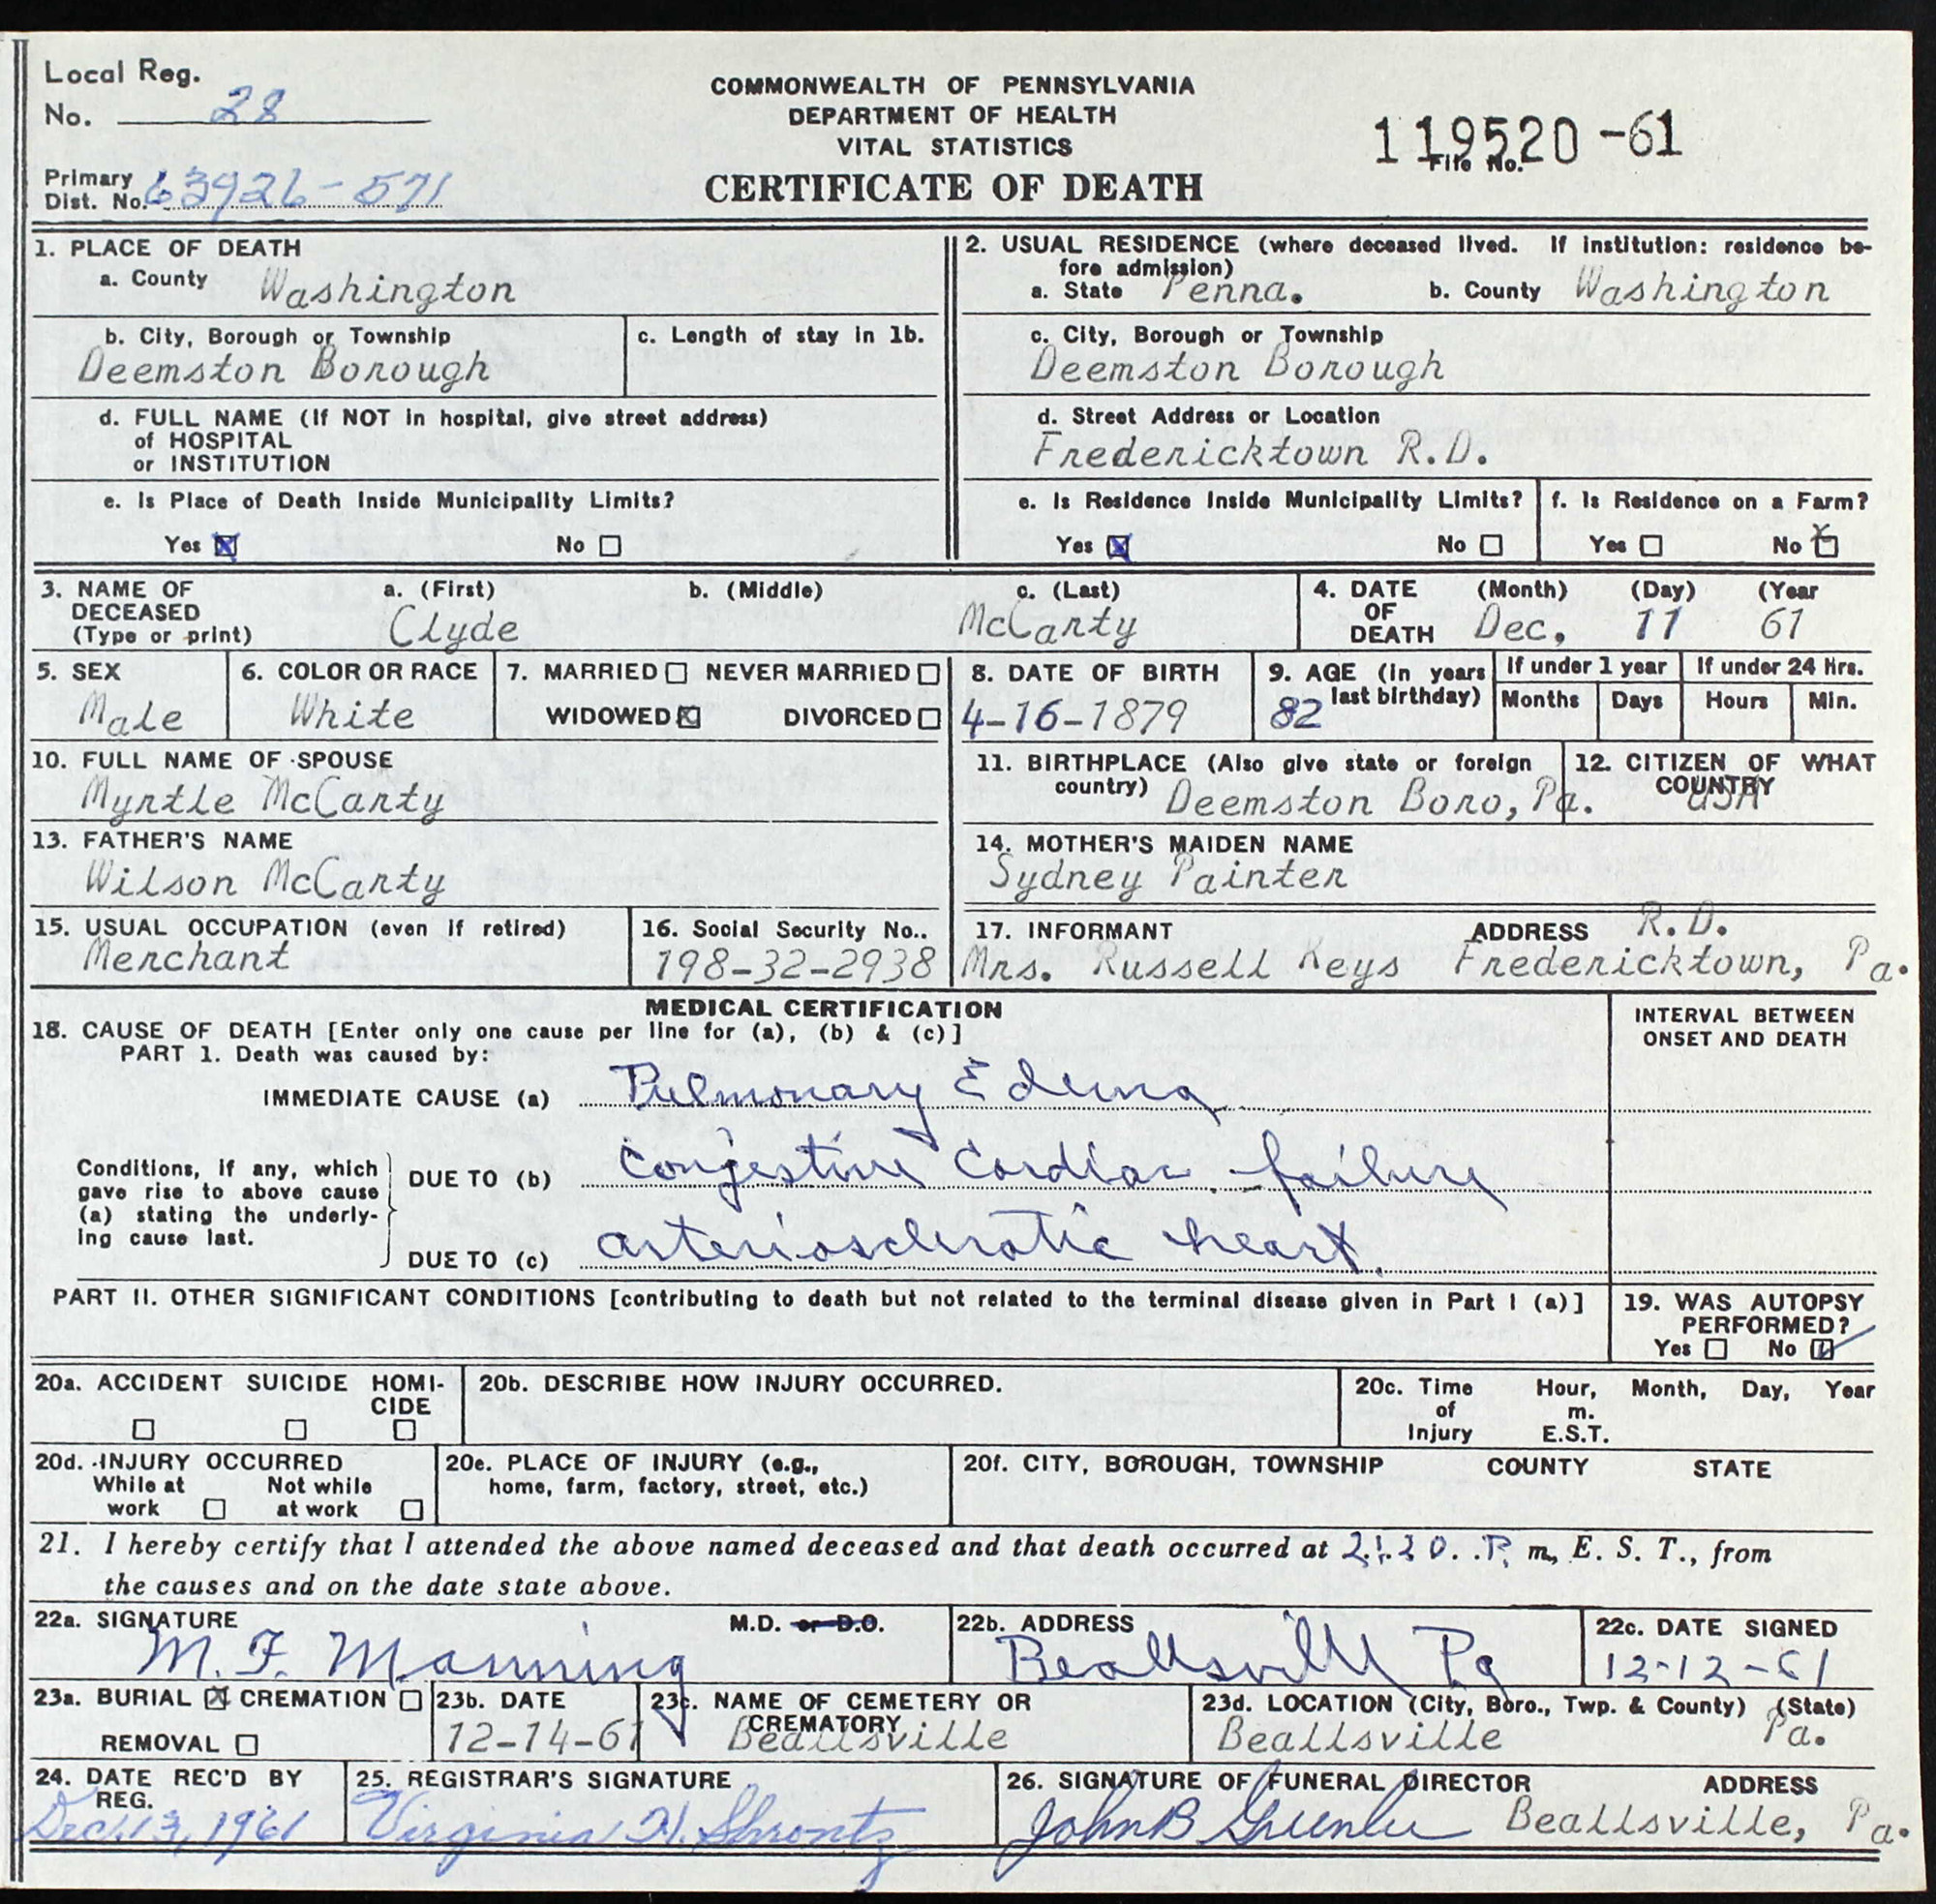 Local Reg.
No. 28
COMMONWEALTH OF PENNSYLVANIA
DEPARTMENT OF HEALTH
VITAL STATISTICS
CERTIFICATE OF DEATH
119520-61
File No.
Primary
Dist. No. 63926-571
1. PLACE OF DEATH
a. County Washington
b. City, Borough or Township
Deemston Borough
c. Length of stay in 1b.
d. FULL NAME (If NOT in hospital, give street address)
of HOSPITAL
or INSTITUTION
e. Is Place of Death Inside Municipality Limits?
Yes ☒ No ☐
2. USUAL RESIDENCE (where deceased lived. If institution: residence be-
fore admission)
a. State Penna. b. County Washington
c. City, Borough or Township
Deemston Borough
d. Street Address or Location
Fredericktown R.D.
e. Is Residence Inside Municipality Limits?
Yes ☒ No ☐
f. Is Residence on a Farm?
Yes ☐ No ☒
3. NAME OF DECEASED (Type or print)
a. (First) b. (Middle) c. (Last)
Clyde McCarty
4. DATE OF DEATH (Month) (Day) (Year
Dec, 11 61
5. SEX
Male
6. COLOR OR RACE
White
7. MARRIED ☐ NEVER MARRIED ☐
WIDOWED ☒ DIVORCED ☐
8. DATE OF BIRTH
4-16-1879
9. AGE (in years last birthday)
82
If under 1 year
Months Days
If under 24 Hrs.
Hours Min.
10. FULL NAME OF SPOUSE
Myrtle McCarty
11. BIRTHPLACE (Also give state or foreign
country) Deemston Boro, Pa.
12. CITIZEN OF WHAT
COUNTRY
USA
13. FATHER'S NAME
Wilson McCarty
14. MOTHER'S MAIDEN NAME
Sydney Painter
15. USUAL OCCUPATION (even if retired)
Merchant
16. Social Security No..
198-32-2938
17. INFORMANT ADDRESS R.D.
Mrs. Russell Keys Fredericktown, Pa.
MEDICAL CERTIFICATION
18. CAUSE OF DEATH [Enter only one cause per line for (a), (b) & (c)]
PART 1. Death was caused by:
INTERVAL BETWEEN
ONSET AND DEATH
IMMEDIATE CAUSE (a) Pulmonary Edema
Conditions, if any, which
gave rise to above cause
(a) stating the underly-
ing cause last.
DUE TO (b) Congestive Cardiac failure
DUE TO (c) arteriosclerotic heart.
PART II. OTHER SIGNIFICANT CONDITIONS [contributing to death but not related to the terminal disease given in Part I (a)]
19. WAS AUTOPSY
PERFORMED?
Yes ☐ No ☑
20a. ACCIDENT SUICIDE HOMI-
CIDE
☐ ☐ ☐
20b. DESCRIBE HOW INJURY OCCURRED.
20c. Time of Injury Hour, Month, Day, Year
m.
E.S.T.
20d. INJURY OCCURRED
While at work ☐ Not while at work ☐
20e. PLACE OF INJURY (e.g.,
home, farm, factory, street, etc.)
20f. CITY, BOROUGH, TOWNSHIP COUNTY STATE
21. I hereby certify that I attended the above named deceased and that death occurred at 2:20 P. m, E. S. T., from
the causes and on the date state above.
22a. SIGNATURE M.D. or D.O.
M. F. Manning
22b. ADDRESS
Beallsville Pa
22c. DATE SIGNED
12-12-61
23a. BURIAL ☒ CREMATION ☐
REMOVAL ☐
23b. DATE
12-14-61
23c. NAME OF CEMETERY OR
CREMATORY
Beallsville
23d. LOCATION (City, Boro., Twp. & County) (State)
Beallsville Pa.
24. DATE REC'D BY
REG.
Dec. 13, 1961
25. REGISTRAR'S SIGNATURE
Virginia H. Shrontz
26. SIGNATURE OF FUNERAL DIRECTOR ADDRESS
John B Greenlee Beallsville, Pa.